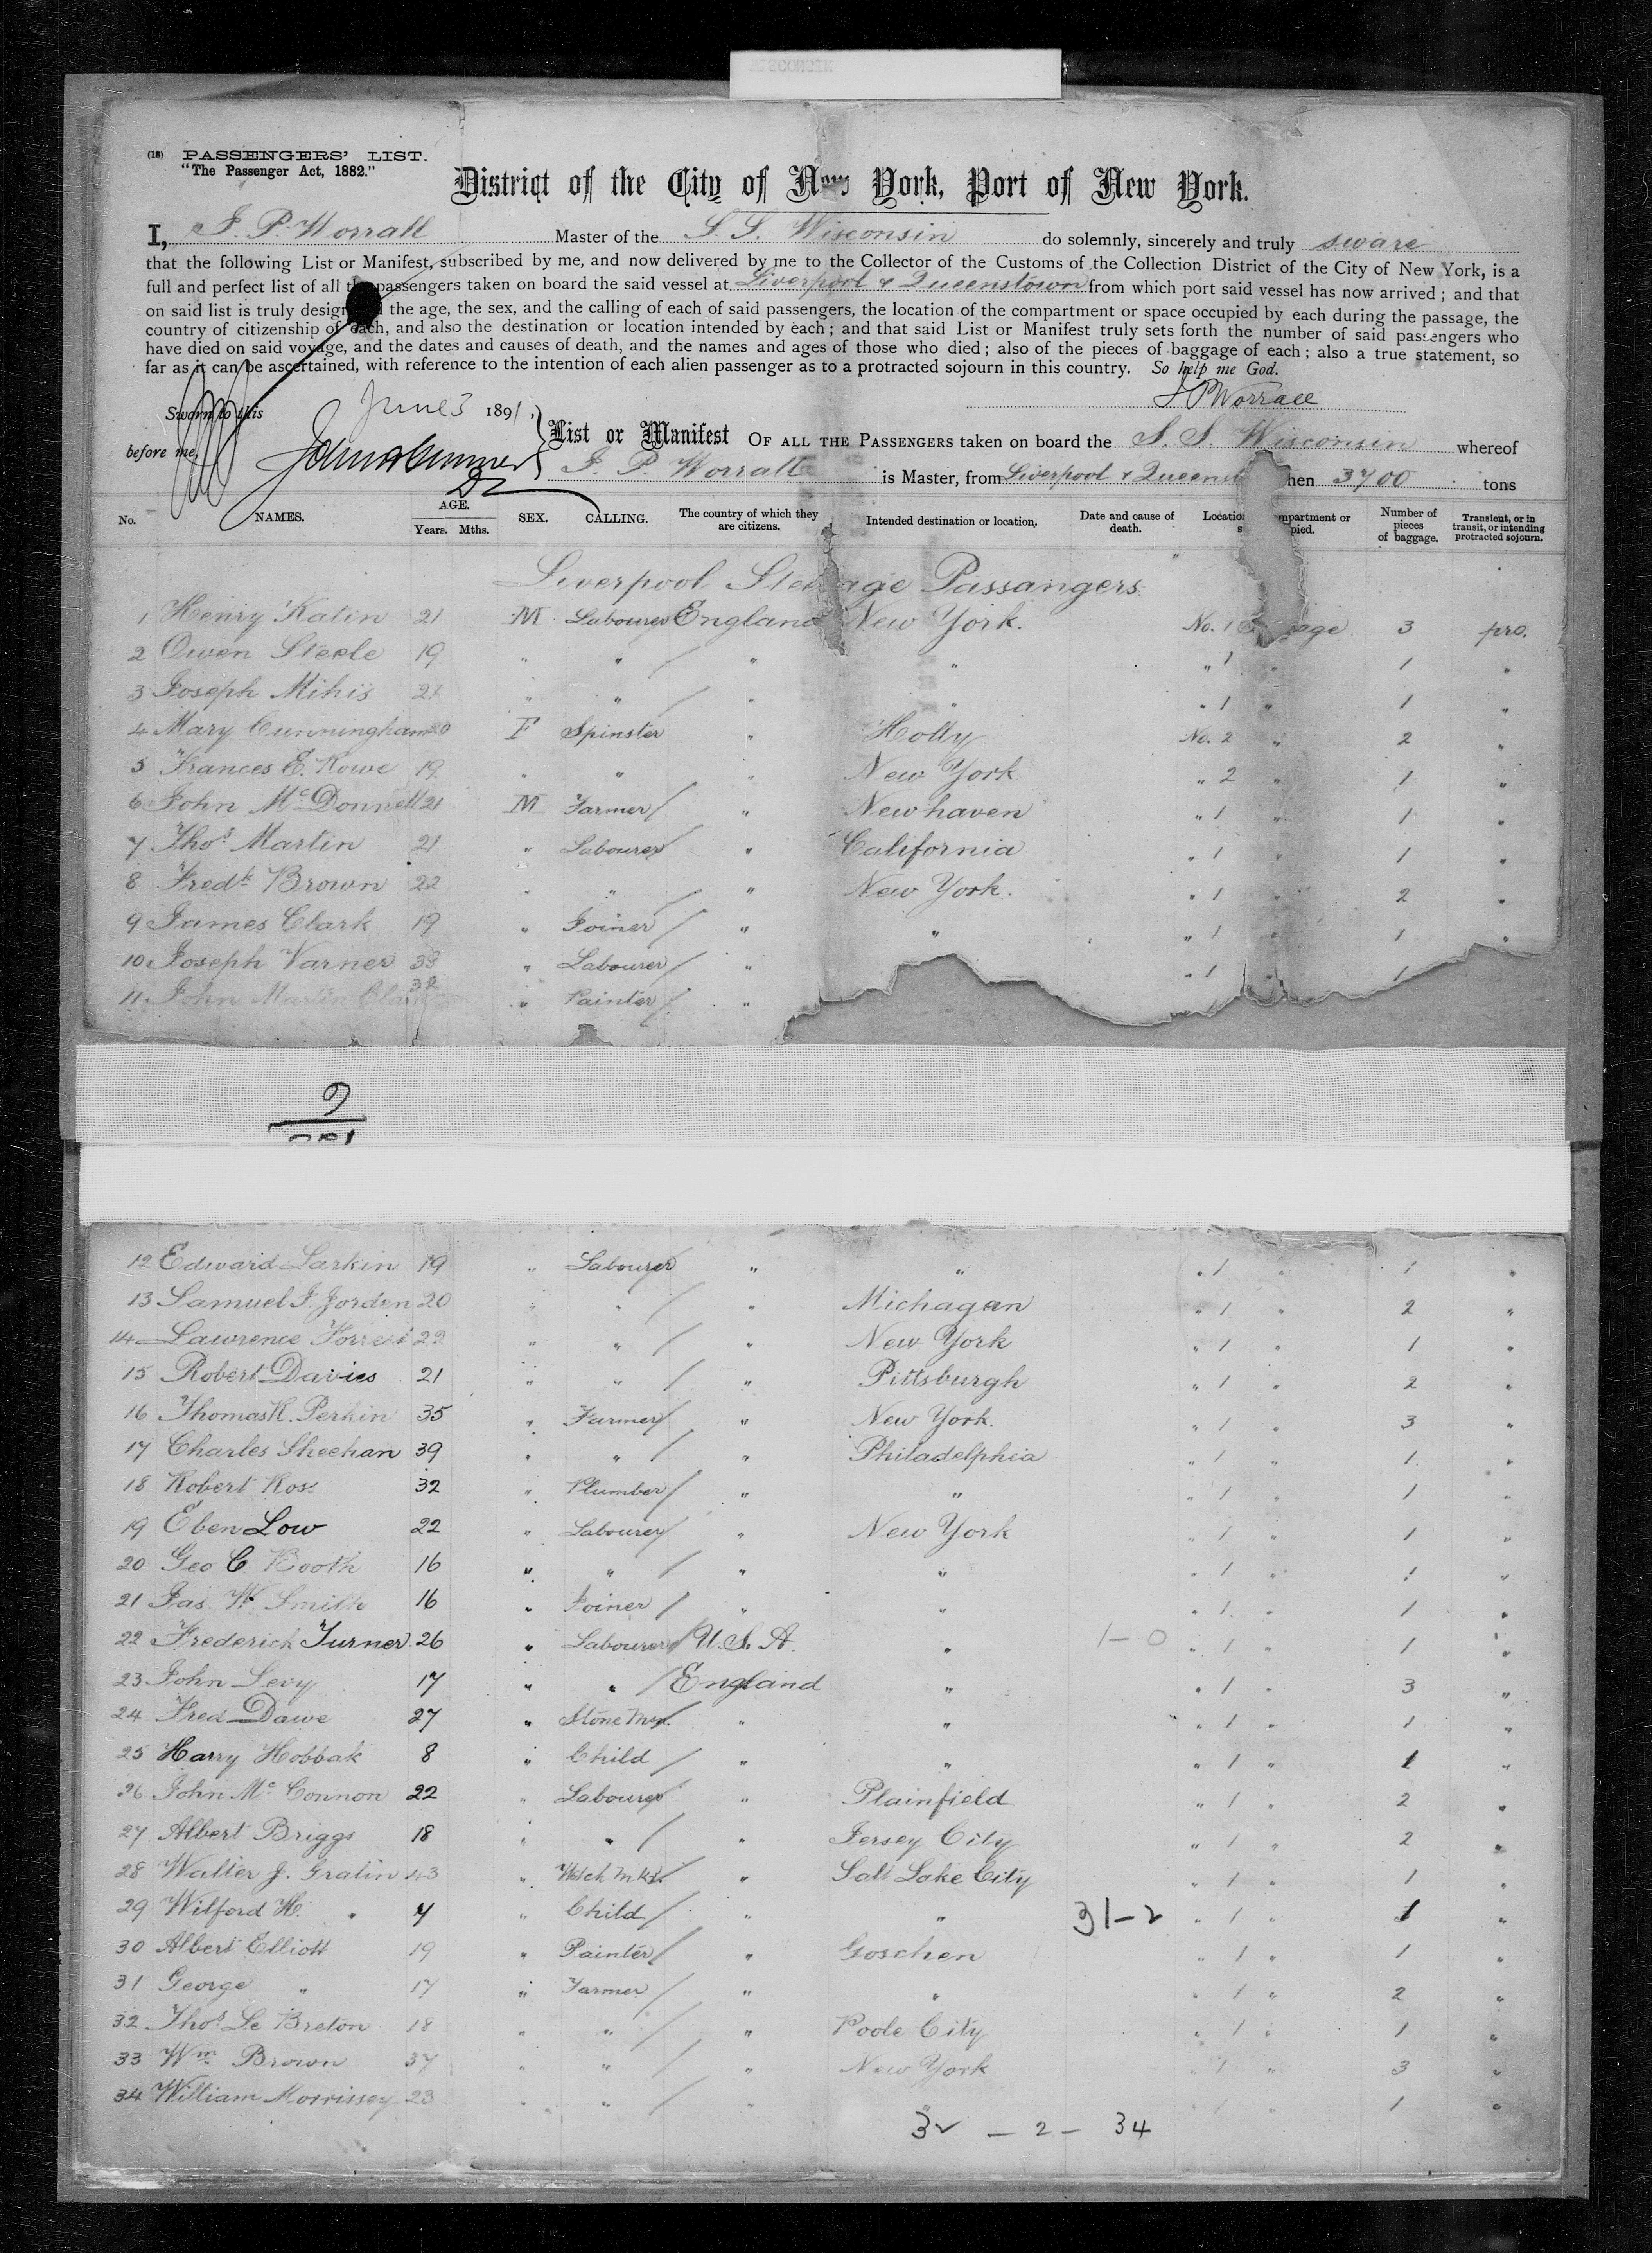 WISCONSIN
(18) PASSENGERS' LIST.
"The Passenger Act, 1882."
District of the City of New York, Port of New York.
I, J. P. Worrall Master of the S. S. Wisconsin do solemnly, sincerely and truly sware
that the following List or Manifest, subscribed by me, and now delivered by me to the Collector of the Customs of the Collection District of the City of New York, is a
full and perfect list of all the passengers taken on board the said vessel at Liverpool & Queenstown from which port said vessel has now arrived; and that
on said list is truly design the age, the sex, and the calling of each of said passengers, the location of the compartment or space occupied by each during the passage, the
country of citizenship of each, and also the destination or location intended by each; and that said List or Manifest truly sets forth the number of said passengers who
have died on said voyage, and the dates and causes of death, and the names and ages of those who died; also of the pieces of baggage of each; also a true statement, so
far as it can be ascertained, with reference to the intention of each alien passenger as to a protracted sojourn in this country. So help me God.
Sworn to this June 3 1891, J P Worrall
before me,
List or Manifest OF ALL THE PASSENGERS taken on board the S. S. Wisconsin whereof
J. P. Worrall is Master, from Liverpool & Queenst hen 3700 tons
No. NAMES. AGE. Years. Mths. SEX. CALLING. The country of which they are citizens. Intended destination or location. Date and cause of death. Location mpartment or s pied. Number of pieces of baggage. Transient, or in transit, or intending protracted sojourn.
Liverpool Steerage Passangers
1 Henry Katin 21 M Labourer England New York. No. 1 age 3 pro.
2 Owen Steele 19 " " / " " " 1 " 1 "
3 Joseph Mihis 21 " " / " " " 1 " 1 "
4 Mary Cunningham 20 F Spinster " Holly No. 2 " 2 "
5 Frances E. Rowe 19 " " " New York " 2 " 1 "
6 John McDonnell 21 M Farmer / " Newhaven " 1 " 1 "
7 Thos Martin 21 " Labourer / " California " 1 " 1 "
8 Fredk Brown 22 " " / " New York. " 1 " 2 "
9 James Clark 19 " Joiner / " " " 1 " 1 "
10 Joseph Varner 38 " Labourer / " " 1 " 1
11 John Martin 32 " Painter / "
9
12 Edward Larkin 19 " Labourer / " " " 1 " 1 "
13 Samuel J. Jorden 20 " " / " Michagan " 1 " 2 "
14 Lawrence Forrest 22 " " / " New York " 1 " 1 "
15 Robert Davies 21 " " / " Pittsburgh " 1 " 2 "
16 Thomas R. Perkin 35 " Farmer / " New York. " 1 " 3 "
17 Charles Sheehan 39 " " / " Philadelphia " 1 " 1 "
18 Robert Ross 32 " Plumber / " " " 1 " 1 "
19 Eben Low 22 " Labourer / " New York " 1 " 1 "
20 Geo C Booth 16 " " / " " " 1 " 1 "
21 Jas. W. Smith 16 " Joiner / " " " 1 " 1 "
22 Frederich Turner 26 " Labourer / U. S. A. " 1-0 " 1 " 1 "
23 John Levy 17 " " / England " " 1 " 3 "
24 Fred Dawe 27 " Stone Msn. / " " " 1 " 1 "
25 Harry Hobbak 8 " Child / " " " 1 " 1 "
26 John Mc Connon 22 " Labourer / " Plainfield " 1 " 2 "
27 Albert Briggs 18 " " / " Jersey City " 1 " 2 "
28 Walter J. Gratin 43 " Watch Mkr. / " Salt Lake City " 1 " 1 "
29 Wilford H. " 4 " Child / " " 31-2 " 1 " 1 "
30 Albert Elliott 19 " Painter / " Goschen " 1 " 1 "
31 George " 17 " Farmer / " " " 1 " 2 "
32 Thos Le Breton 18 " " / " Poole City " 1 " 1 "
33 Wm Brown 37 " " / " New York " 1 " 3 "
34 William Morrissey 23 " " / " " " 1 " 1 "
32 - 2 - 34